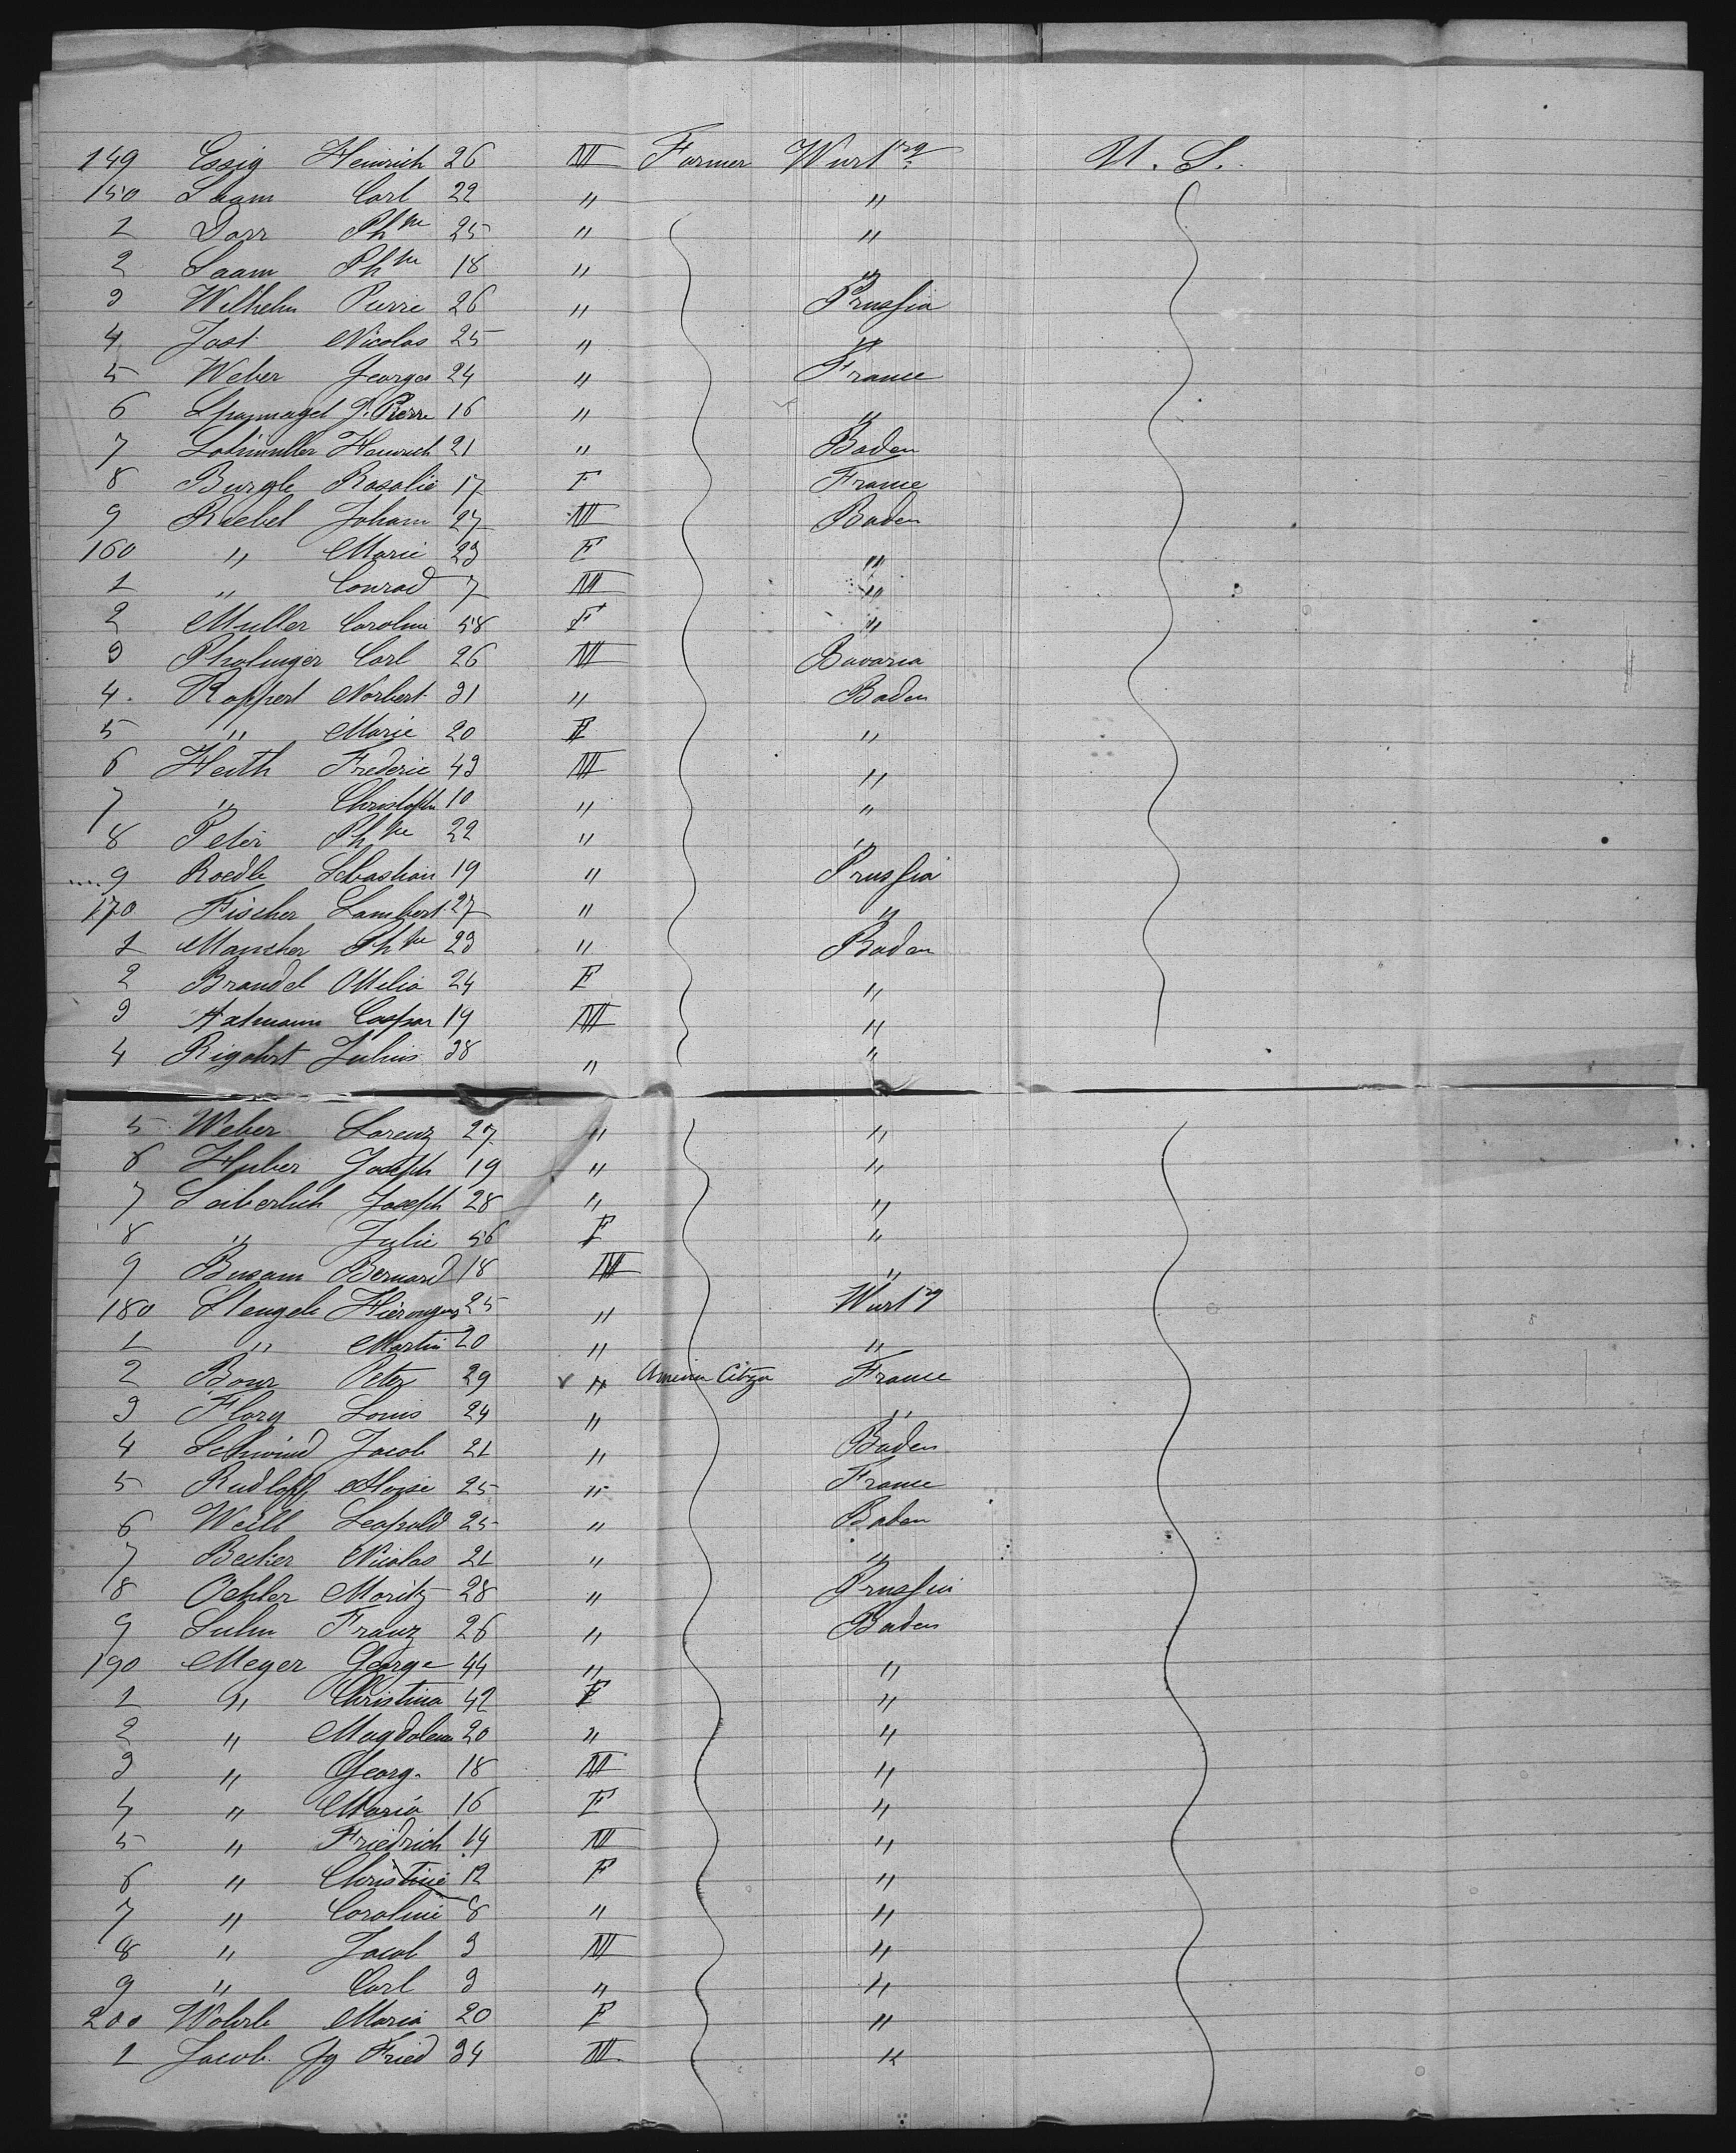 149 Essig Heinrich 26 M Farmer Wurtrg U. S.
150 Laam Carl 22 " "
1 Dorr Phpe 25 " "
2 Laam Phpe 18 " "
3 Wilhelm Pierre 26 " Prussia
4 Jost Nicolas 25 " "
5 Weber Georges 24 " France
6 J. Pierre 16 " "
7 Heinrich 21 " Baden
8 Burgle Rosalie 17 F France
9 Riebel Johann 27 M Baden
160 " Marie 23 F "
1 " Conrad 7 M "
2 Muller Caroline 58 F "
3 Pholinger Carl 26 M Bavaria
4 Roppert Norbert 31 " Baden
5 " Marie 20 F "
6 Heith Frederic 43 M "
7 " Christoph 10 " "
8 Peter Phpe 22 " "
9 Roedle Sebastian 19 " Prussia
170 Fischer Lambert 27 " "
1 Mancher Phpe 23 " Baden
2 Brandel Ottilia 24 F "
3 Axtmann Caspar 19 M "
4 Julius 38 " "
5 Weber Lorenz 27 " "
6 Huber Joseph 19 " "
7 Loiberlich Joseph 28 " "
8 " Julie 56 F "
9 Busam Bernard 18 M "
180 Stengele Hieronyms 25 " Wurtrg
1 " Martin 20 " "
2 Bour Peter 29 " France
3 Flory Louis 24 " "
4 Schwind Jacob 21 " Baden
5 Rudloff Aloise 25 " France
6 Weill Leopold 25 " Baden
7 Becker Nicolas 21 " "
8 Oehler Moritz 28 " Prussia
9 Luhn Franz 26 " Baden
190 Meyer George 44 " "
1 " Christina 42 F "
2 " Magdalena 20 " "
3 " Georg. 18 M "
4 " Maria 16 F "
5 " Friedrich 14 M "
6 " Christine 12 F "
7 " Caroline 8 " "
8 " Jacob 3 M "
9 " Carl 3 " "
200 Wohrle Maria 20 F "
1 Jacob Jg Fried 34 M "